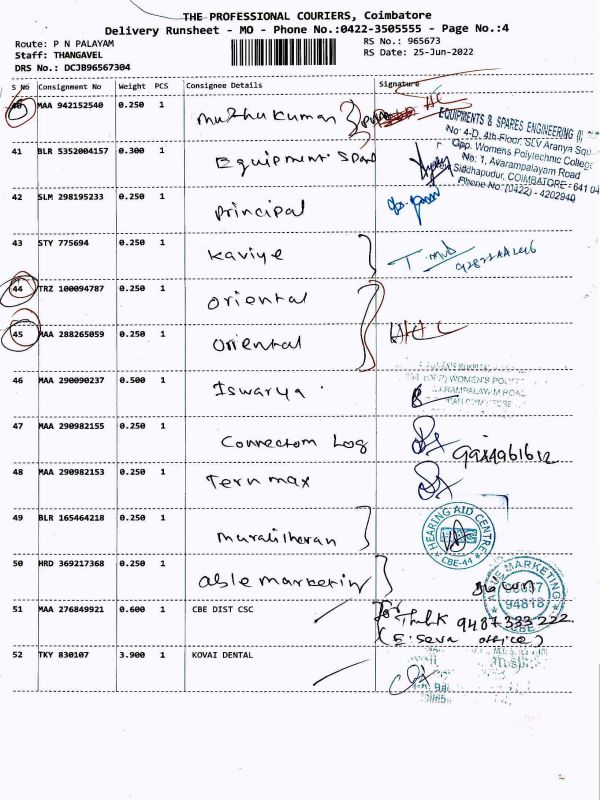 THE PROFESSIONAL COURIERS, Coimbatore
Delivery Runsheet - MO - Phone No.:0422-3505555 - Page No.:4
Route: P N PALAYAM
Staff: THANGAVEL
DRS No.: DCJB96567304
RS No.: 965673
RS Date: 25-Jun-2022
S No Consignment No Weight PCS Consignee Details Signature
40 MAA 942152540 0.250 1 Muthukumar
EQUIPMENTS & SPARES ENGINEERING (I)
No 4-D, 4th Floor, SLV Aranya Squ
Opp. Womens Polytechnic College
No: 1, Avarampalayam Road
Siddhapudur, COIMBATORE - 641 04
Phone No: (0422) - 4202940
41 BLR 5352004157 0.300 1 Equipment Spar
42 SLM 298195233 0.250 1 principal
43 STY 775694 0.250 1 Kaviye
44 TRZ 100094787 0.250 1 oriental
45 MAA 288265059 0.250 1 Oriental
46 MAA 290090237 0.500 1 Iswarya
WOMEN'S POLY
47 MAA 290982155 0.250 1 Connectom Log
48 MAA 290982153 0.250 1 Tern max
49 BLR 165464218 0.250 1 muralitharan
HEARING AID CENTRE
CBE-44
50 HRD 369217368 0.250 1 able marketing
ABLE MARKETING
94818
CBE
51 MAA 276849921 0.600 1 CBE DIST CSC
for
9487 333 222
(E. Seva office)
52 TKY 830107 3.900 1 KOVAI DENTAL